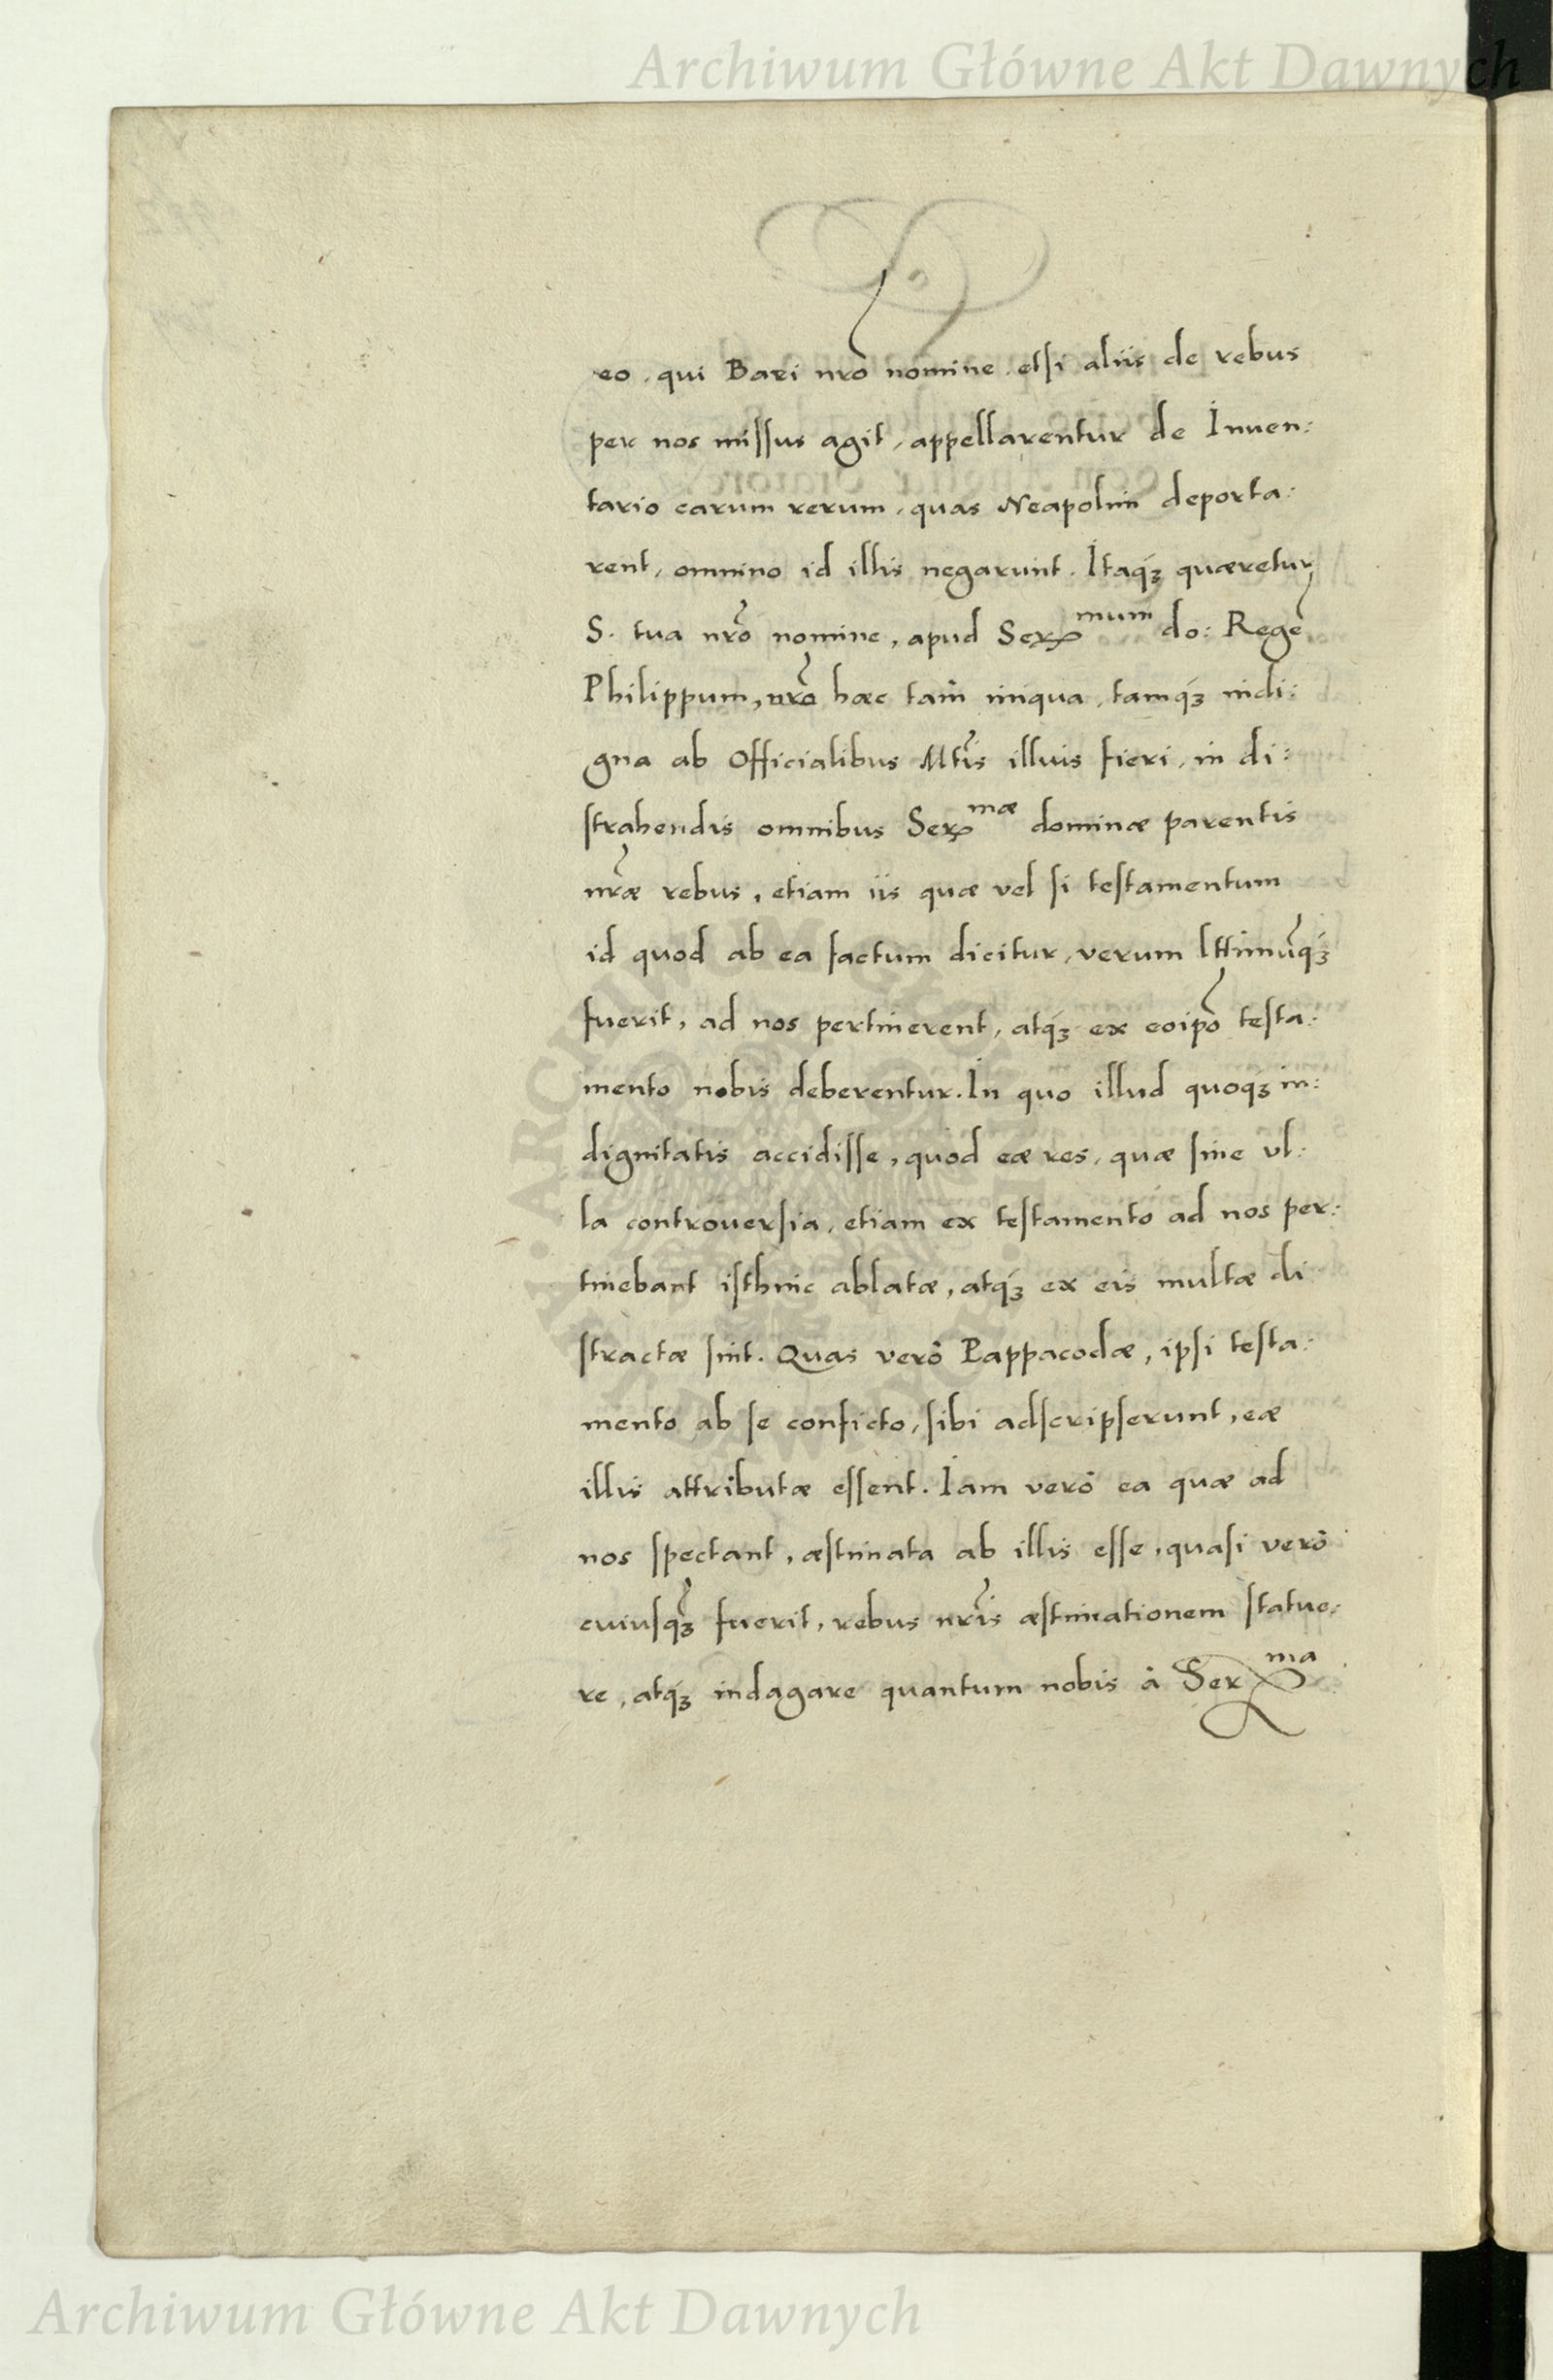 Archiwum Główne Akt Dawnych
eo, qui Bari nrõ nomine, etsi aliis de rebus
per nos missus agit, appellarentur de Inuen:
tario earum rerum, quas Neapolim deporta:
rent, omnino id illis negarunt. Itaq́ꝫ quæretur
S. tua nrõ nomine, apud Ser^mum do: Regẽ
Philippum, nrõ hæc tam̃ iniqua, tamq́ꝫ indi:
gna ab Officialibus Mtĩs illius fieri, in di:
strahendis omnibus Ser^mæ dominæ parentis
nrãe rebus, etiam iis quæ vel si testamentum
id quod ab ea factum dicitur, verum lttimũq́ꝫ
fuerit, ad nos pertinerent, atq́ꝫ ex eoipõ testa:
mento nobis deberentur. In quo illud quoq́ꝫ in:
dignitatis accidisse, quòd eæ res, quæ sine vl:
la controuersia, etiam ex testamento ad nos per:
tinebant isthinc ablatæ, atq́ꝫ ex eis multæ di
stractæ sint. Quas verò Pappacodæ, ipsi testa:
mento ab se conficto, sibi adscripserunt, eæ
illis attributæ essent. Iam verò ea quæ ad
nos spectant, æstimata ab illis esse, quasi verò
cuiusq́ꝫ fuerit, rebus nrĩs æstimationem statue:
re, atq́ꝫ indagare quantum nobis à Ser^ma
Archiwum Główne Akt Dawnych